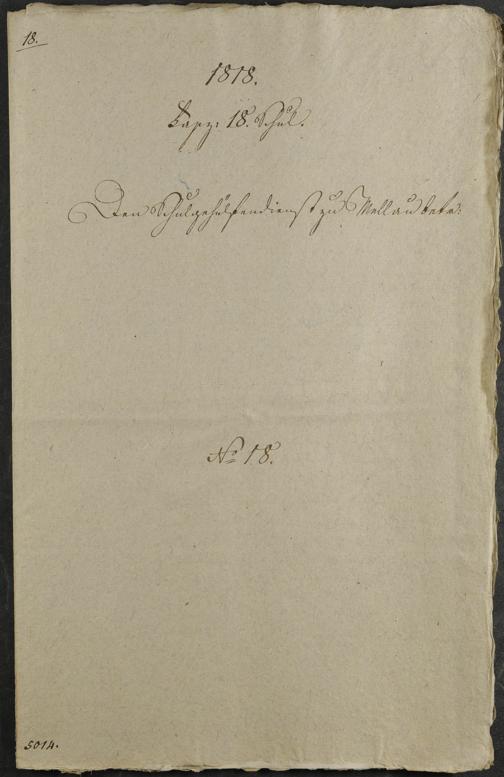 18.
1818.
Fasz: 18. Schul.
Den Schulgehülfendienst zu Mellau betr:
No 18.
5014.